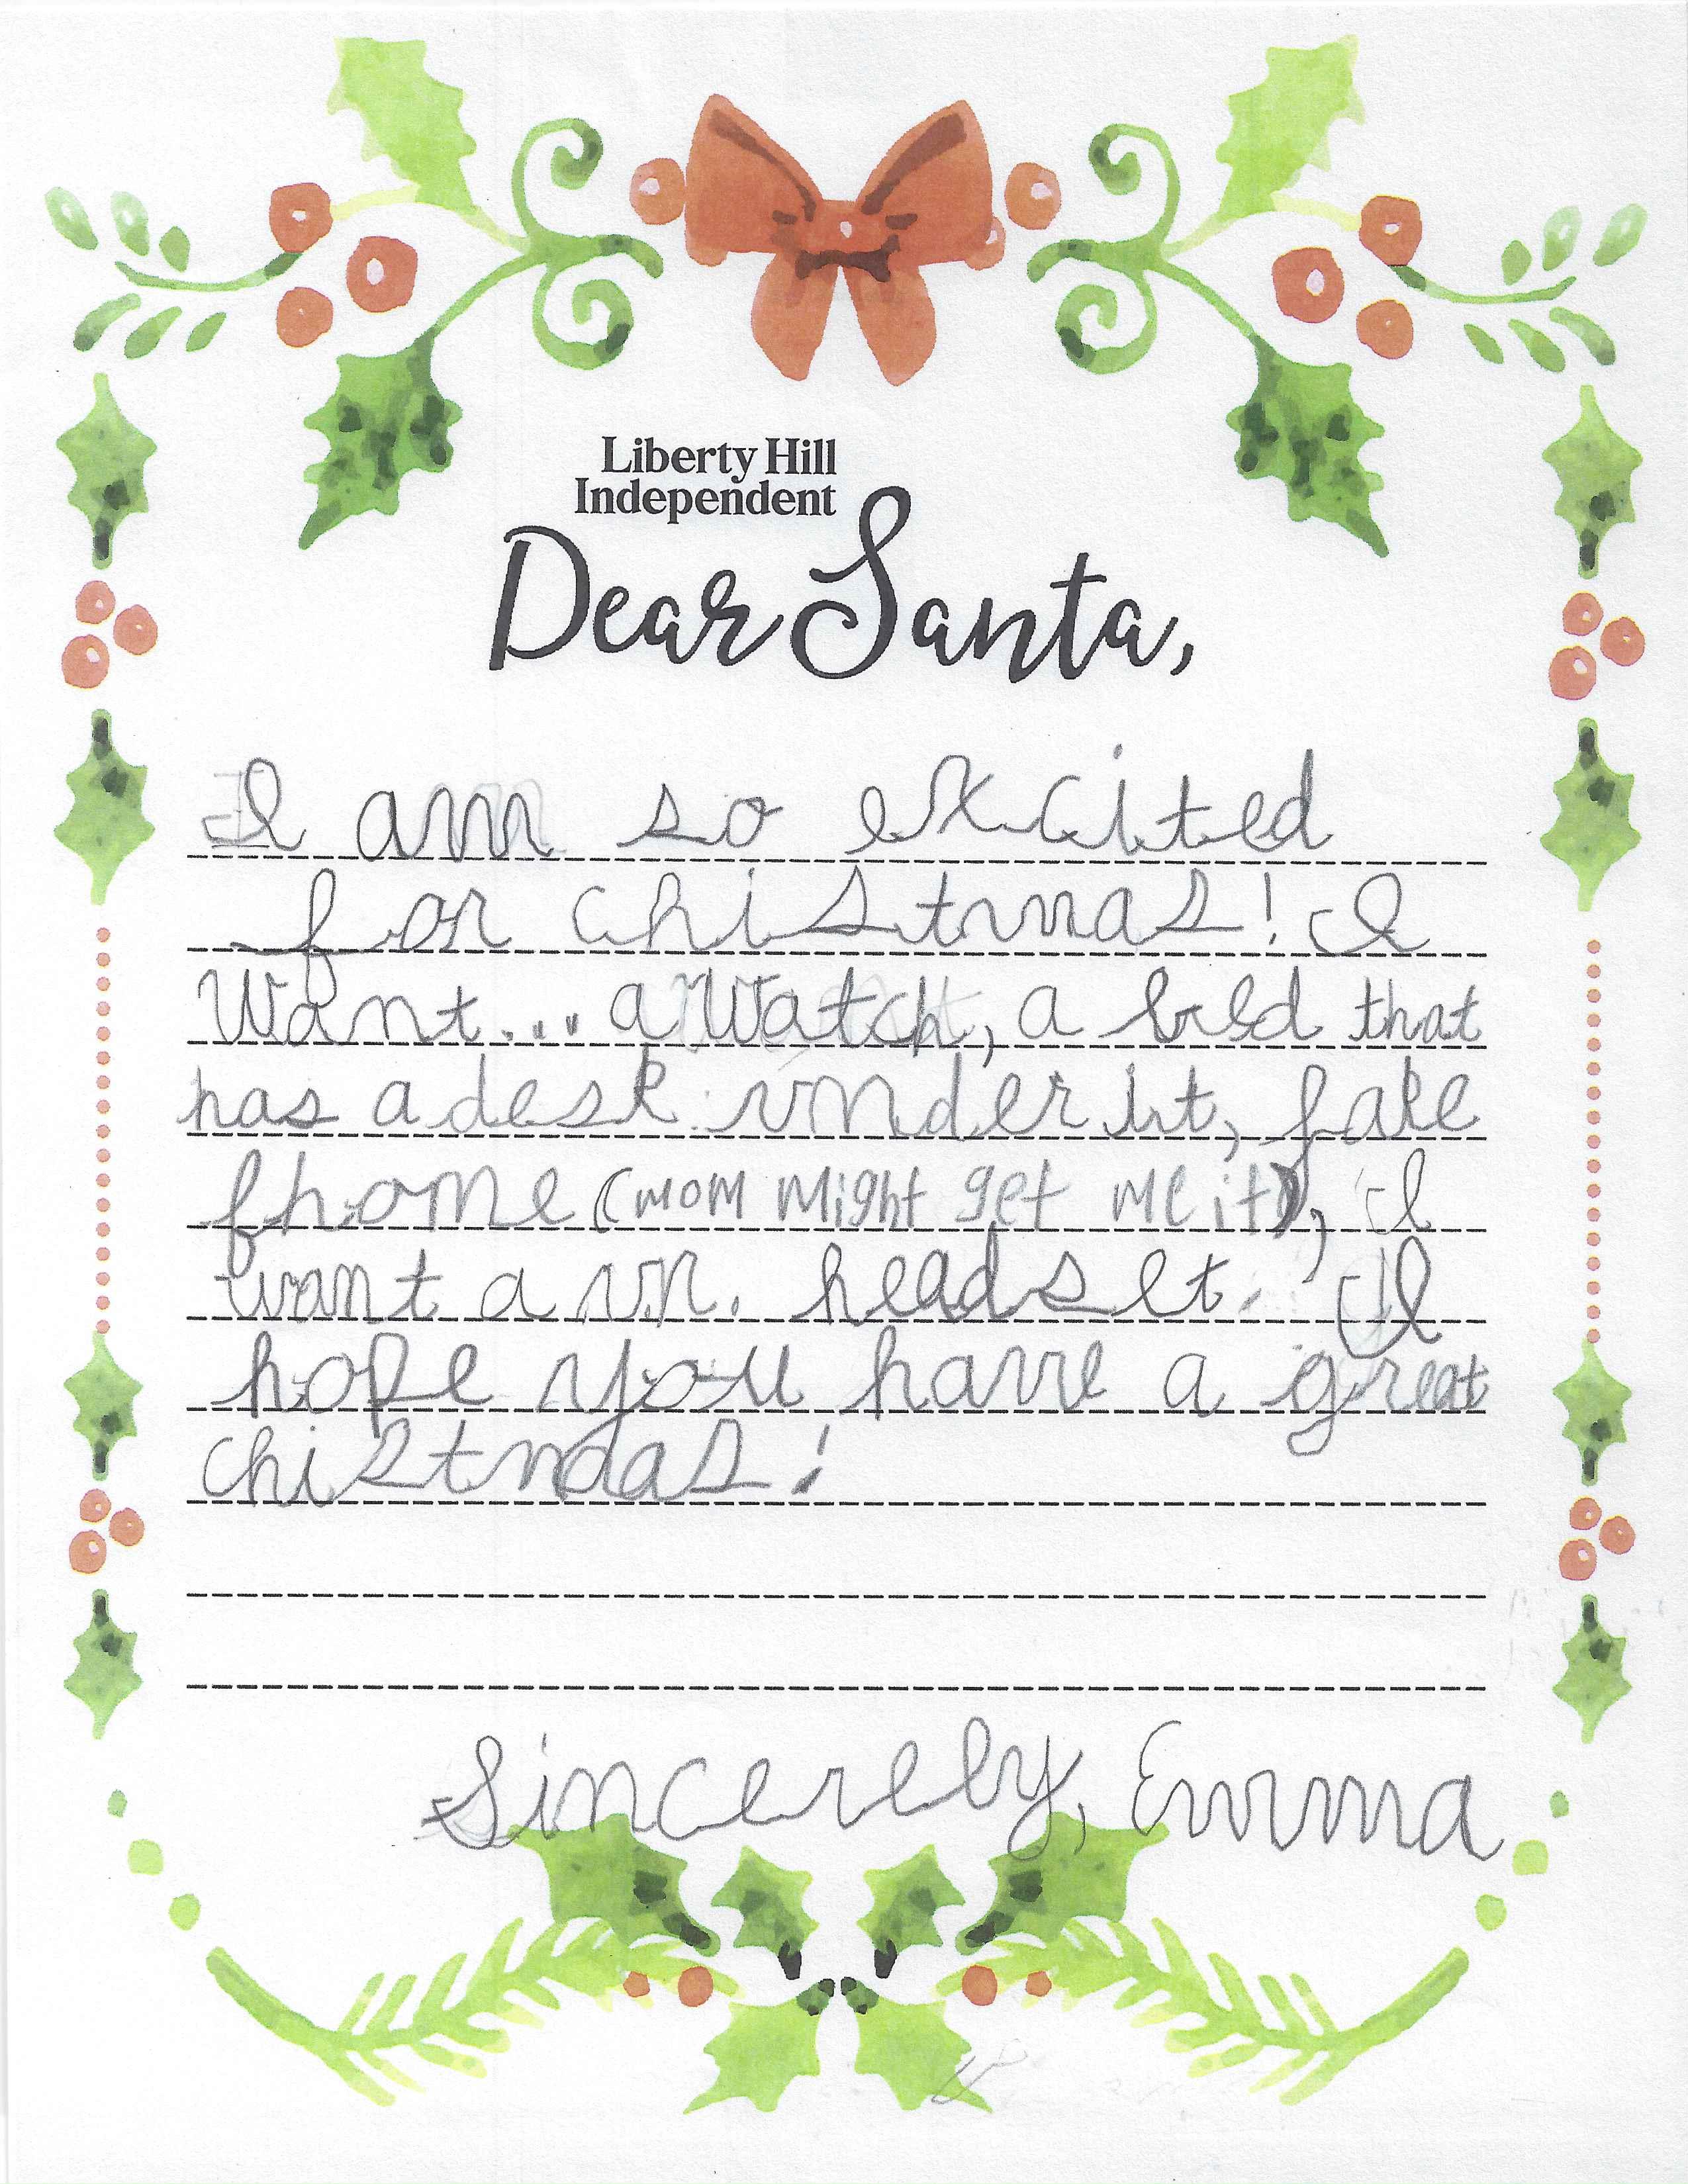 Liberty Hill
Independent
Dear Santa,
I am so excited
for chistmas! I
Want... a Watch, a bed that
has a desk under it, fake
fhone (mom might get me it), I
want a vr. headset. I
hope you have a great
chistmas!
Sincerely, Emma